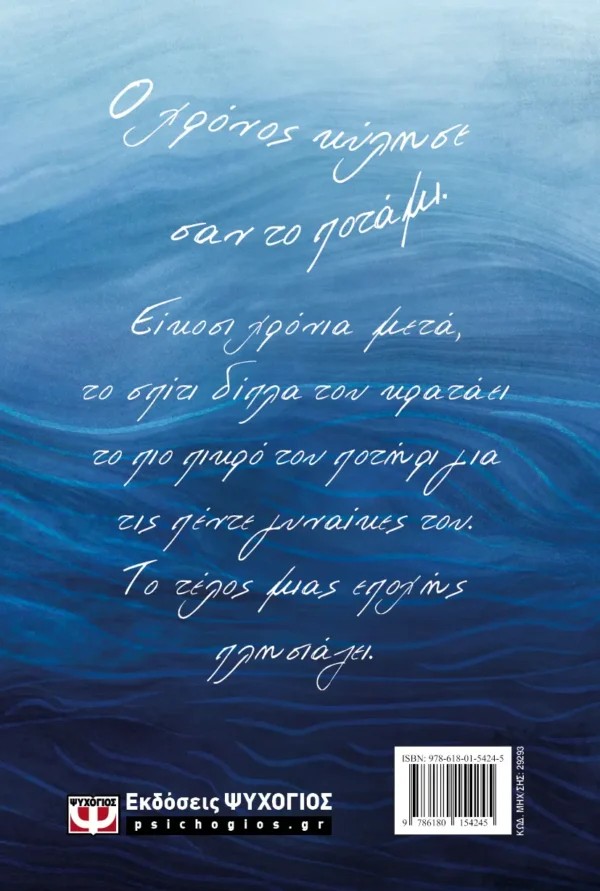 Ο χρόνος κύλησε
σαν το ποτάμι.
Είκοσι χρόνια μετά,
το σπίτι δίπλα του κρατάει
το πιο πικρό του ποτήρι για
τις πέντε γυναίκες του.
Το τέλος μιας εποχής
πλησιάζει.
ISBN: 978-618-01-5424-5
9 786180 154245
ΚΩΔ. ΜΗΧ/ΣΗΣ: 29293
ΨΥΧΟΓΙΟΣ
Εκδόσεις ΨΥΧΟΓΙΟΣ
psichogios.gr